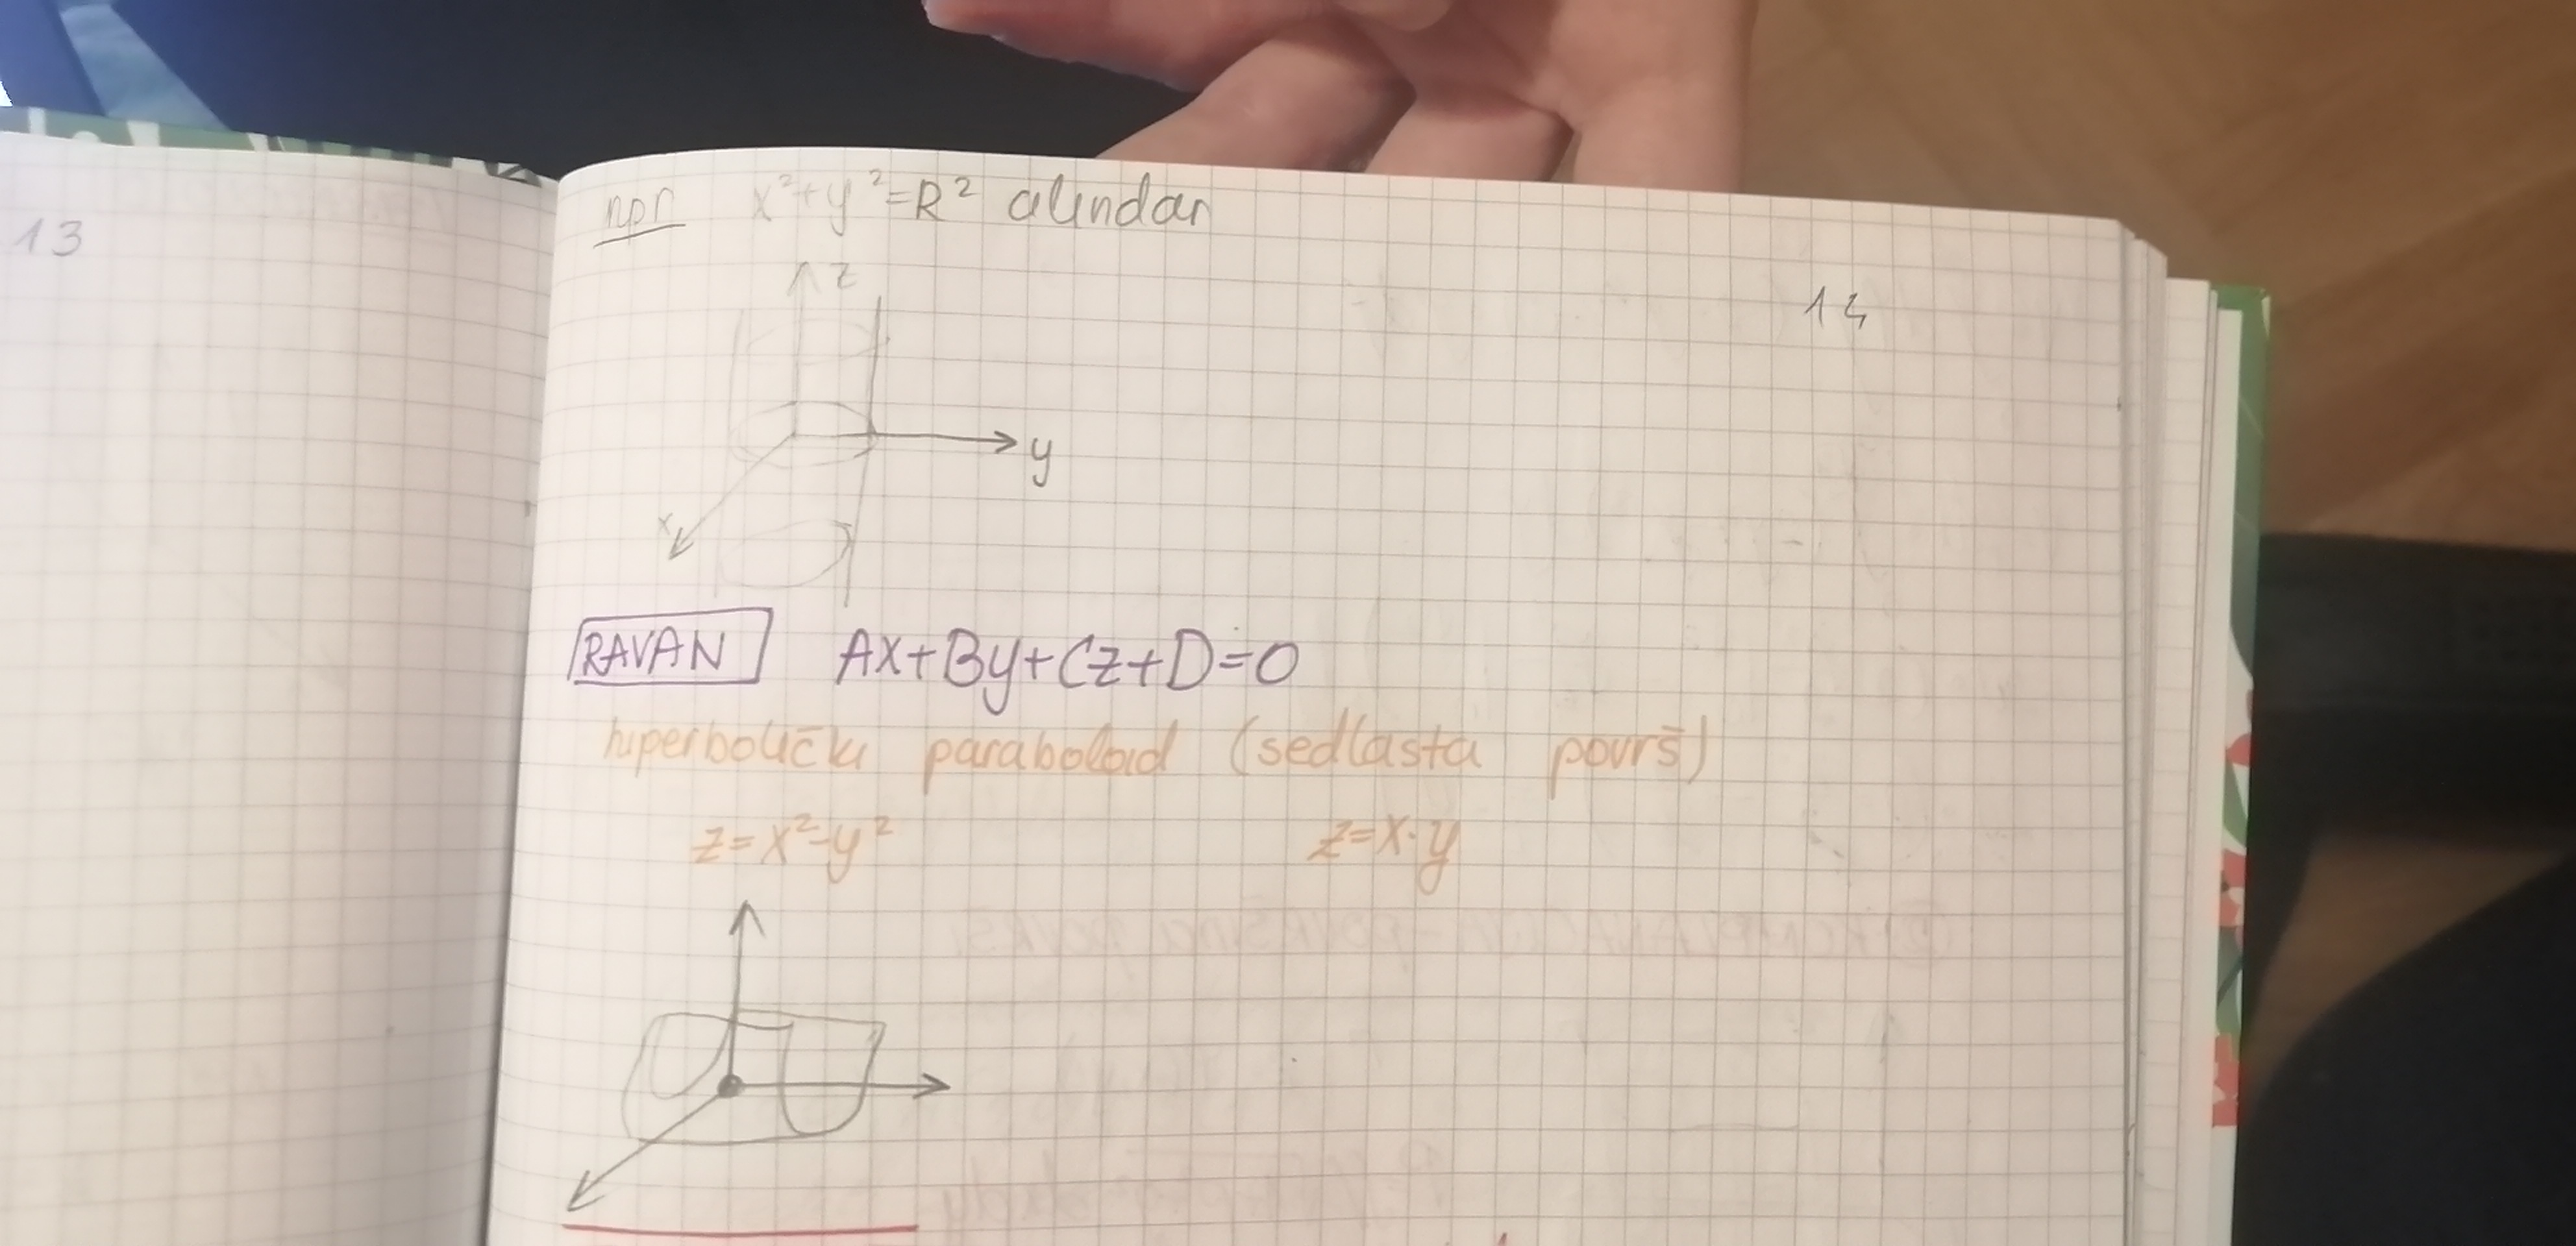 13
npr x²+y²=R² cilindar
z
14
y
x
RAVAN Ax+By+Cz+D=0
hiperbolički paraboloid (sedlasta površ)
z=x²-y² z=x·y